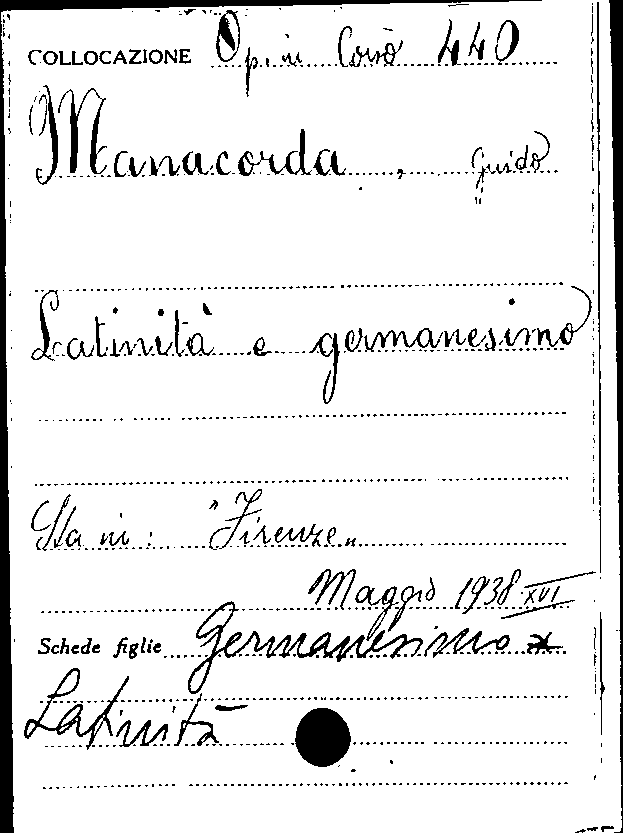 COLLOCAZIONE Op. in Corso 440
Manacorda , Guido
"
Latinità e germanesimo
Sta in : "Firenze„
Maggio 1938 XVI
Schede figlie Germanesimo x
Latinità